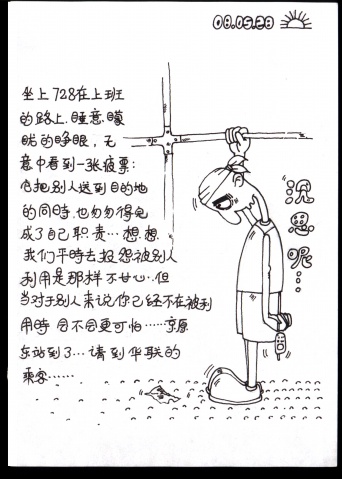 08.05.28
坐上728在上班
的路上.睡意.朦
胧的睁眼，无
意中看到一张疲票：
它把别人送到目的地
的同时.也匆匆得完
成了自己职责…想想
我们平时去报怨被别人
利用是那样不甘心.但
当对于别人来说你已经不在被利
用时 会不会更可怕……京原
东站到了…请到华联的
乘客……
沉思呢…